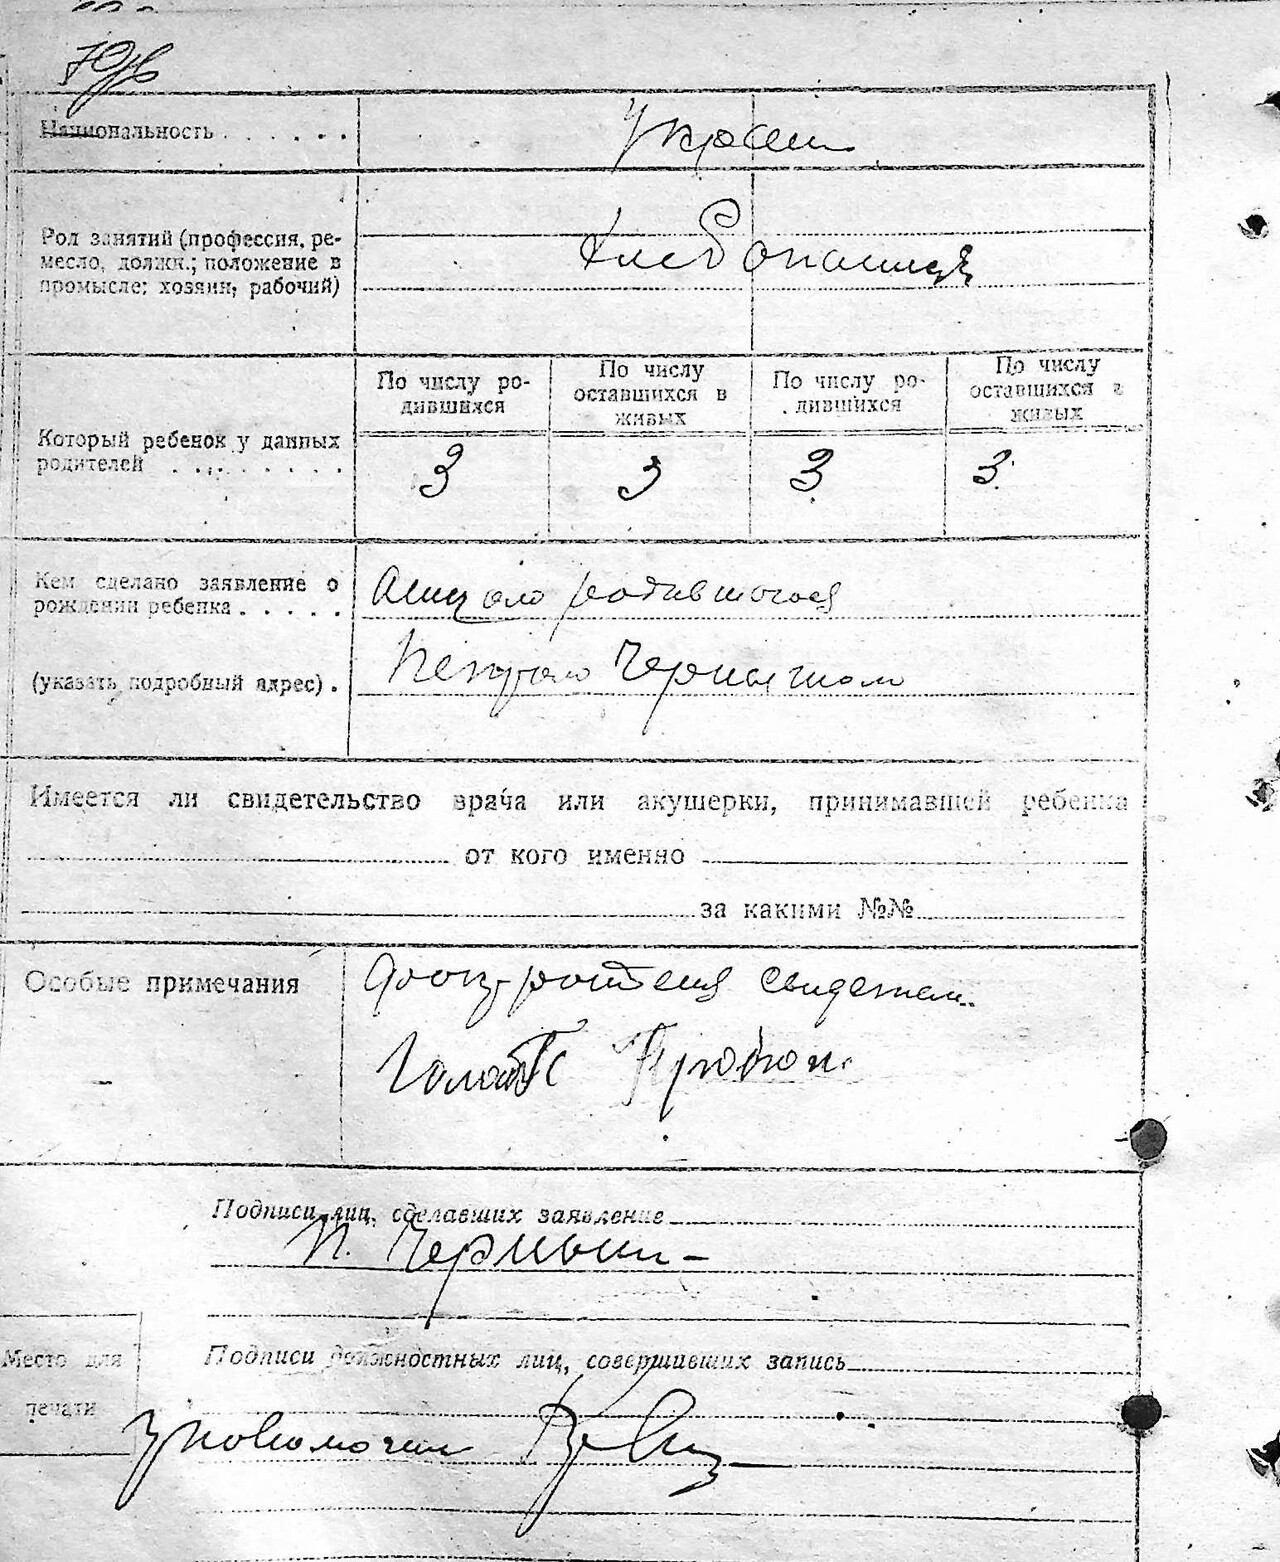 Национальность . . . . . .
Украин
Род занятий (профессия, ре-
месло, должн.; положение в
промысле: хозяин, рабочий)
Хлебопашец
По числу ро-
дившихся
По числу
оставшихся в
живых
По числу ро-
дившихся
По числу
оставшихся в
живых
Который ребенок у данных
родителей . . . . . . . .
3 3 3 3
Кем сделано заявление о
рождении ребенка . . . . .
родившогося
(указать подробный адрес) .
Петром
Имеется ли свидетельство врача или акушерки, принимавшей ребенка
от кого именно
за какими №№
Особые примечания
свидетел
Подписи лиц, сделавших заявление
П.
Место для
печати
Подписи должностных лиц, совершивших запись
Уповномочен